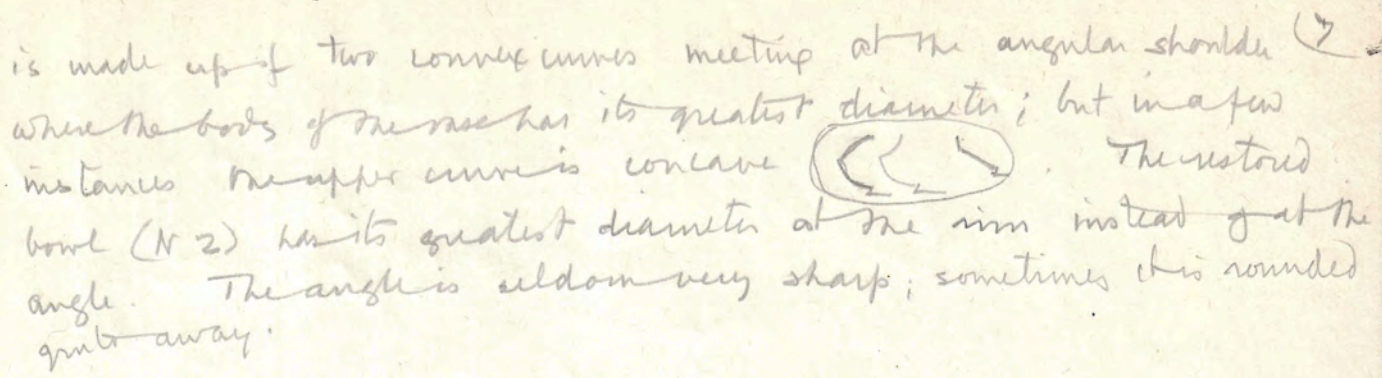 is made up of two convex curves meeting at the angular shoulder (7
where the body of the vase has its greatest diameter; but in a few
instances the upper curve is concave . The restored
bowl (N 2) has its greatest diameter at the rim instead of at the
angle. The angle is seldom very sharp; sometimes it is rounded
quite away.